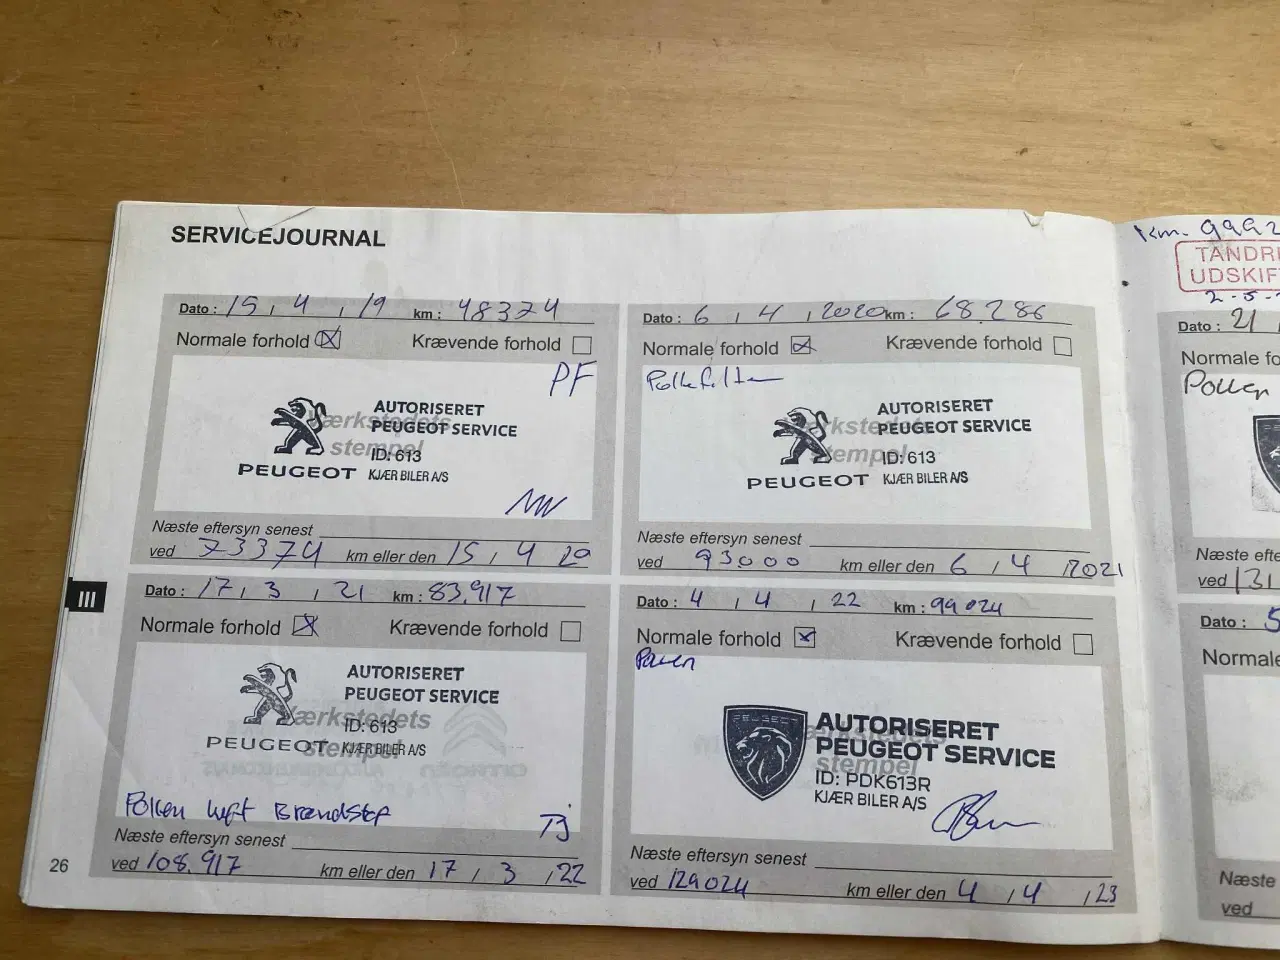 SERVICEJOURNAL
Dato : 15, 4, 19 km : 48374
Normale forhold ☒ Krævende forhold ☐
PF
AUTORISERET
PEUGEOT SERVICE
Værkstedets
stempel
ID: 613
PEUGEOT KJÆR BILER A/S
Næste eftersyn senest
ved 73374 km eller den 15, 4 20
Dato : 6, 4, 2020 km : 68.286
Normale forhold ☒ Krævende forhold ☐
AUTORISERET
PEUGEOT SERVICE
Værkstedets
stempel
ID: 613
PEUGEOT KJÆR BILER A/S
Næste eftersyn senest
ved 93000 km eller den 6, 4, 2021
Dato : 17, 3, 21 km : 83.917
Normale forhold ☒ Krævende forhold ☐
AUTORISERET
PEUGEOT SERVICE
Værkstedets
stempel
ID: 613
PEUGEOT KJÆR BILER A/S
Pollen luft Brændstof
TJ
Næste eftersyn senest
ved 108.917 km eller den 17, 3, 22
Dato : 4, 4, 22 km : 99024
Normale forhold ☒ Krævende forhold ☐
Pollen
PEUGEOT
AUTORISERET
PEUGEOT SERVICE
stempel
ID: PDK613R
KJÆR BILER A/S
Næste eftersyn senest
ved 129024 km eller den 4, 4, 23
III
26
Km. 9992
TANDR
UDSKIF
2-5-
Dato : 21,
Normale fo
Pollen
Næste efte
ved 131
Dato : 5
Normale
Næste
ved